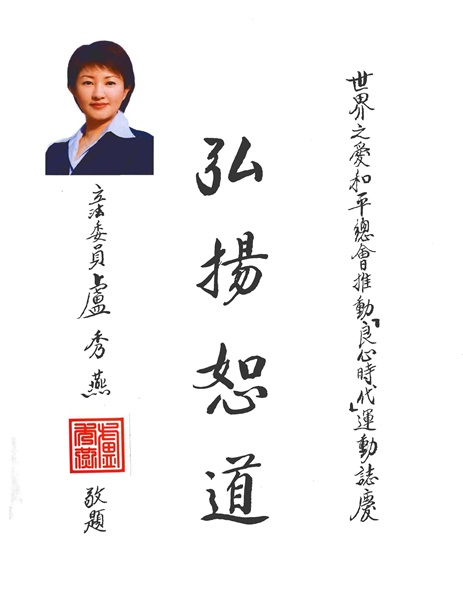 世界之愛和平總會推動「良心時代」運動誌慶
弘揚恕道
立法委員盧秀燕
盧秀燕
敬題